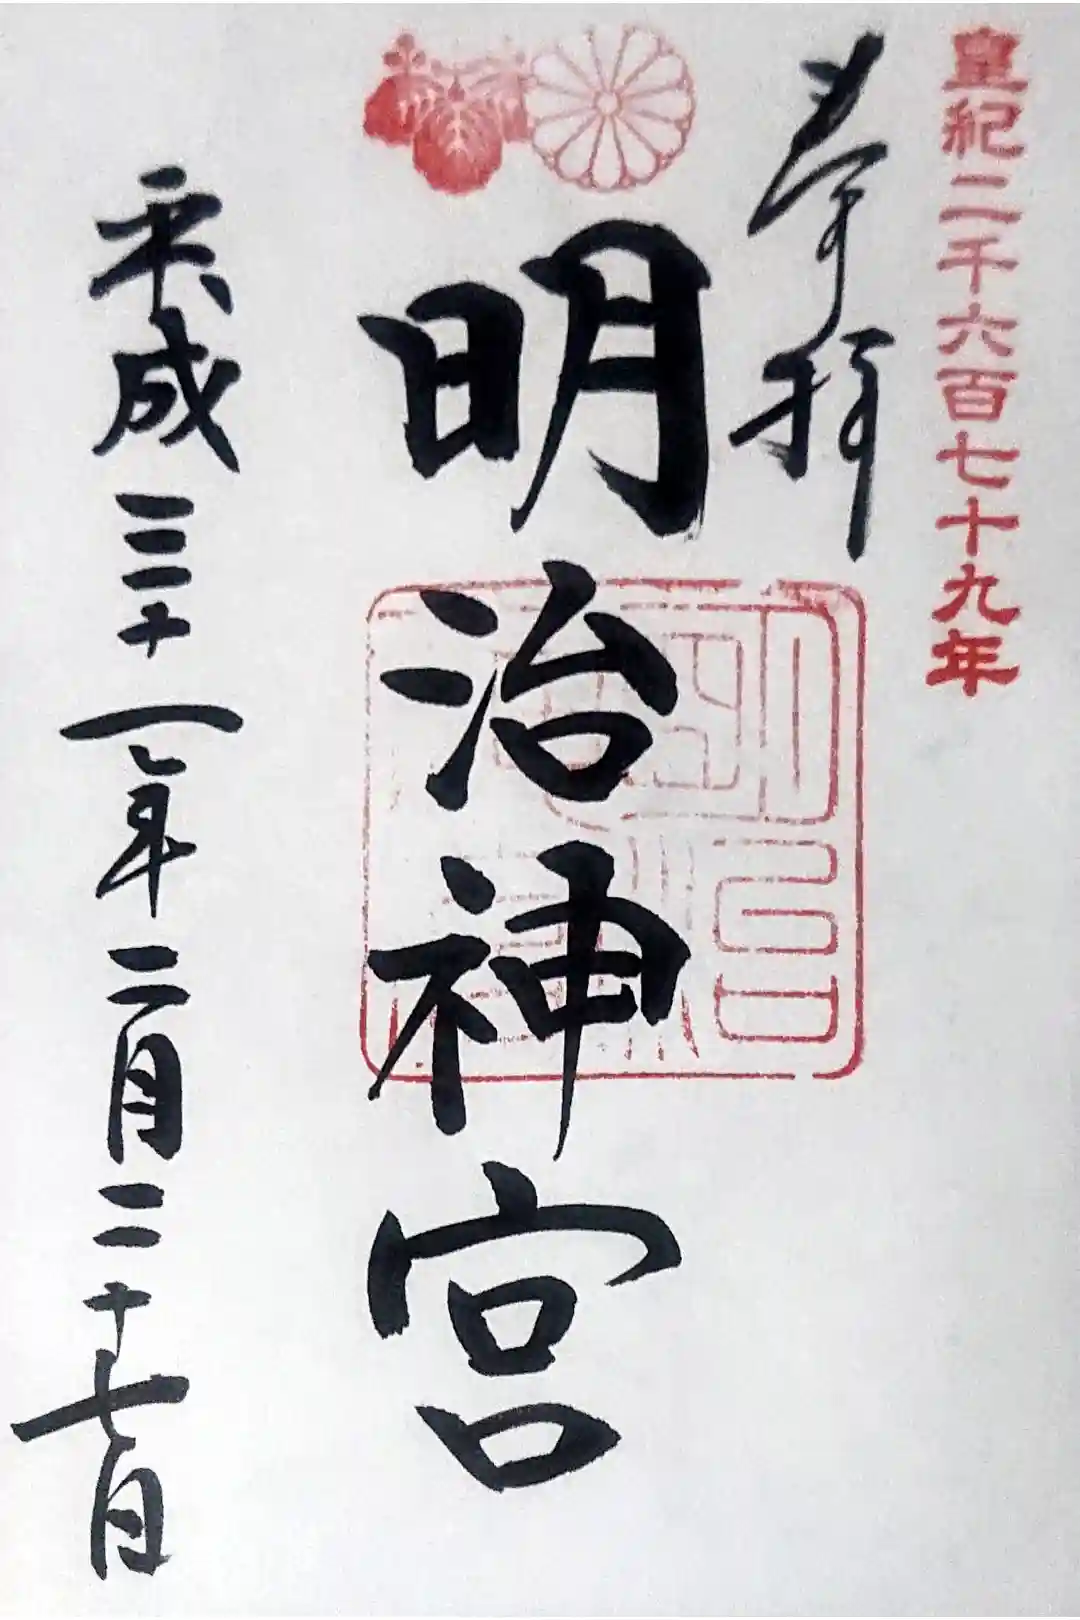 皇紀二千六百七十九年
奉拝
明治神宮
平成三十一年二月二十七日